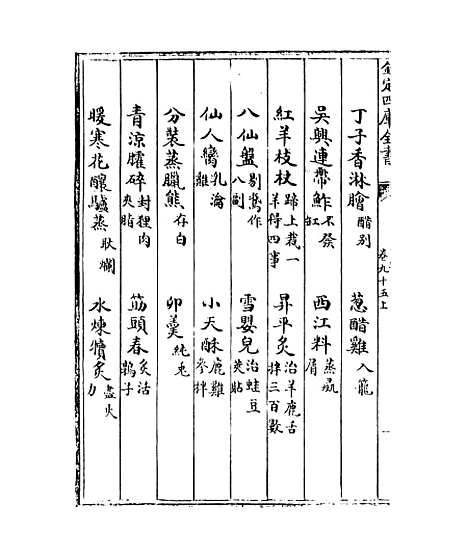 欽定四庫全書
卷九十五上
丁子香淋膾醋别　葱醋雞入籠
吳興連帶鮓不發缸　西江料蒸彘屑
紅羊枝杖蹄上裁一羊得四事　昇平炙治羊鹿舌拌三百數
八仙盤剔鵞作八副　雪嬰兒治蛙豆莢貼
仙人臠乳瀹雞　小天酥鹿雞參拌
分裝蒸臘熊存白　卯羮純兎
青凉臛碎封狸肉夾脂　筯頭春炙活鶉子
暖寒花釀驢蒸耿爛　水煉犢炙盡火力